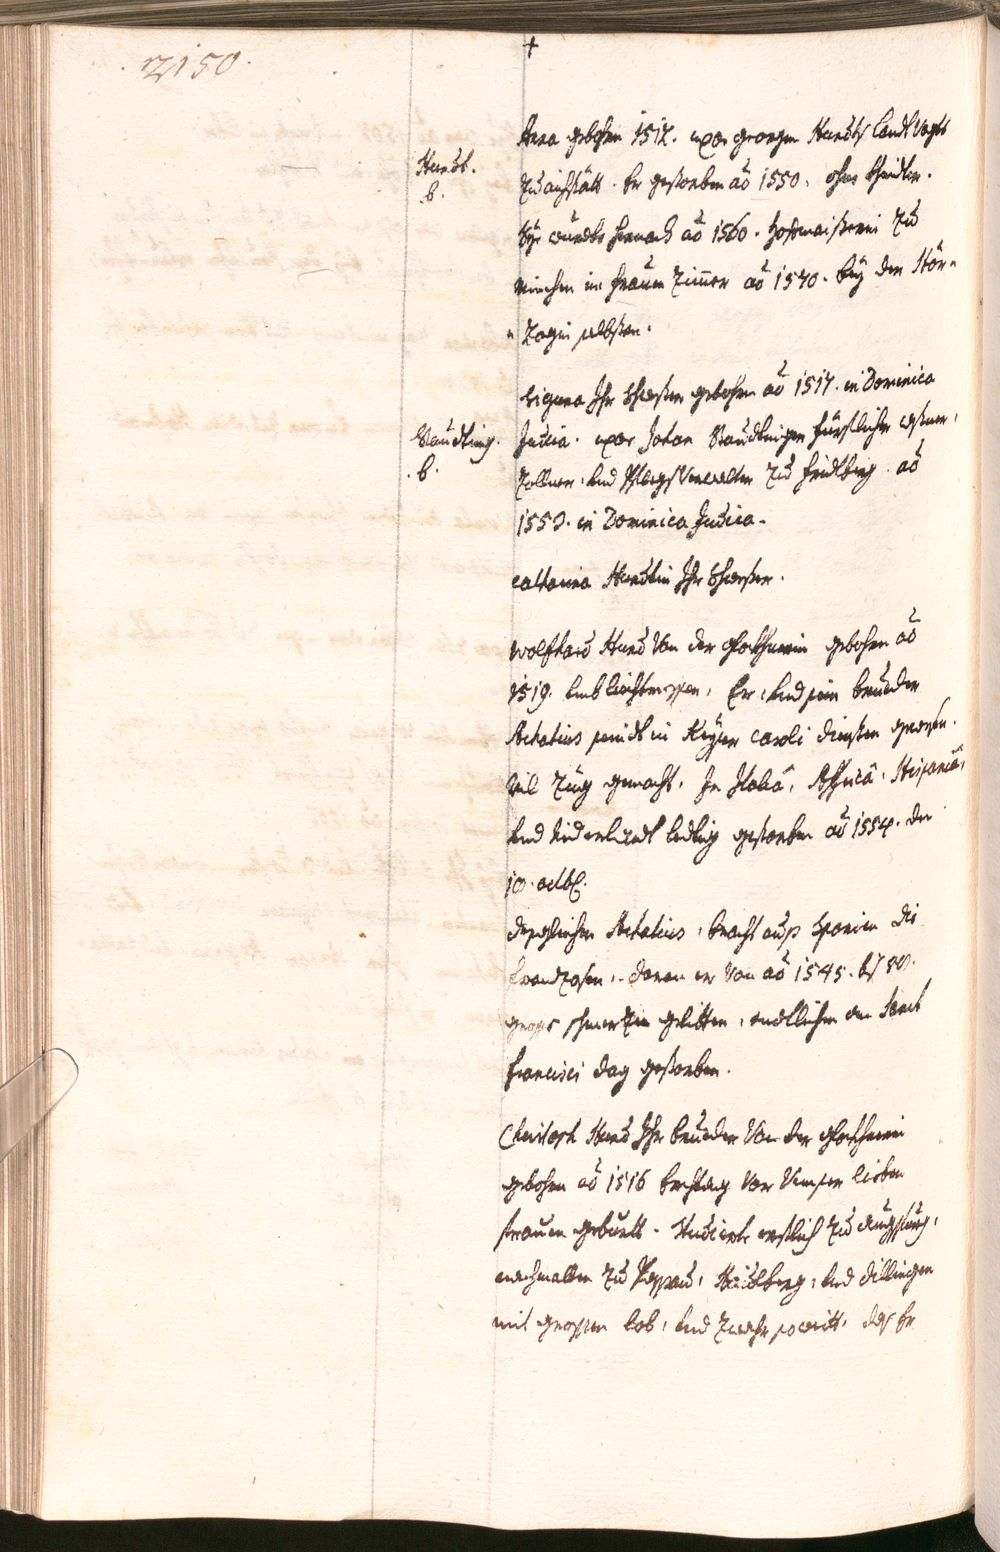 2150.
+
Anna gebohrn 1512. uxor Georgen Hundts Landt Vogts
Hundt.
b.
Zu aichstätt. Er gestorben aõ 1550. ohne Khinder.
Sÿe wurdte hernach aõ 1560. Hofmaisterin Zu
München im frauen Zimmer aõ 1570. beÿ der Hör-
Zogin selbsten.
Siguna Ihr Schwester gebohrn aõ 1517. in Dominica
Staudting.
b.
Judica. uxor Johan Staudinger fürstlicher Casstner,
Zollner, und PflegsVerwalter Zu fridtberg aõ
1553. in Dominica Judica.
Catharina Hundtin Ihr Schwester.
Wolfhard Hund Von der gebohrn aõ
1519. umb Liechtmessen, Er, und sein bruder
Achatius seindt in Kaÿser Caroli diensten gewesen.
Vil Züg gemacht, In Italia, Affrica, Hispania,
und Niderlandt ledtig gestorben aõ 1554. den
10. octob.
Desgleichen Achatius, bracht auß Spanien die
frandzosen, daran er Von aõ 1545. bis
gross schmerzen gelitten, endtlichen an Sanct
francisci dag gestorben.
Christoph Hund Ihr bruder Von der
gebohrn aõ 1516 freÿtag Vor Unser lieben
frauen geburtt. Studierte erstlich Zu Augspurg,
nachmallen Zu Passau, Haidlberg, und dillingen
mit grossen lob, und Zwahr soweitt, das Er